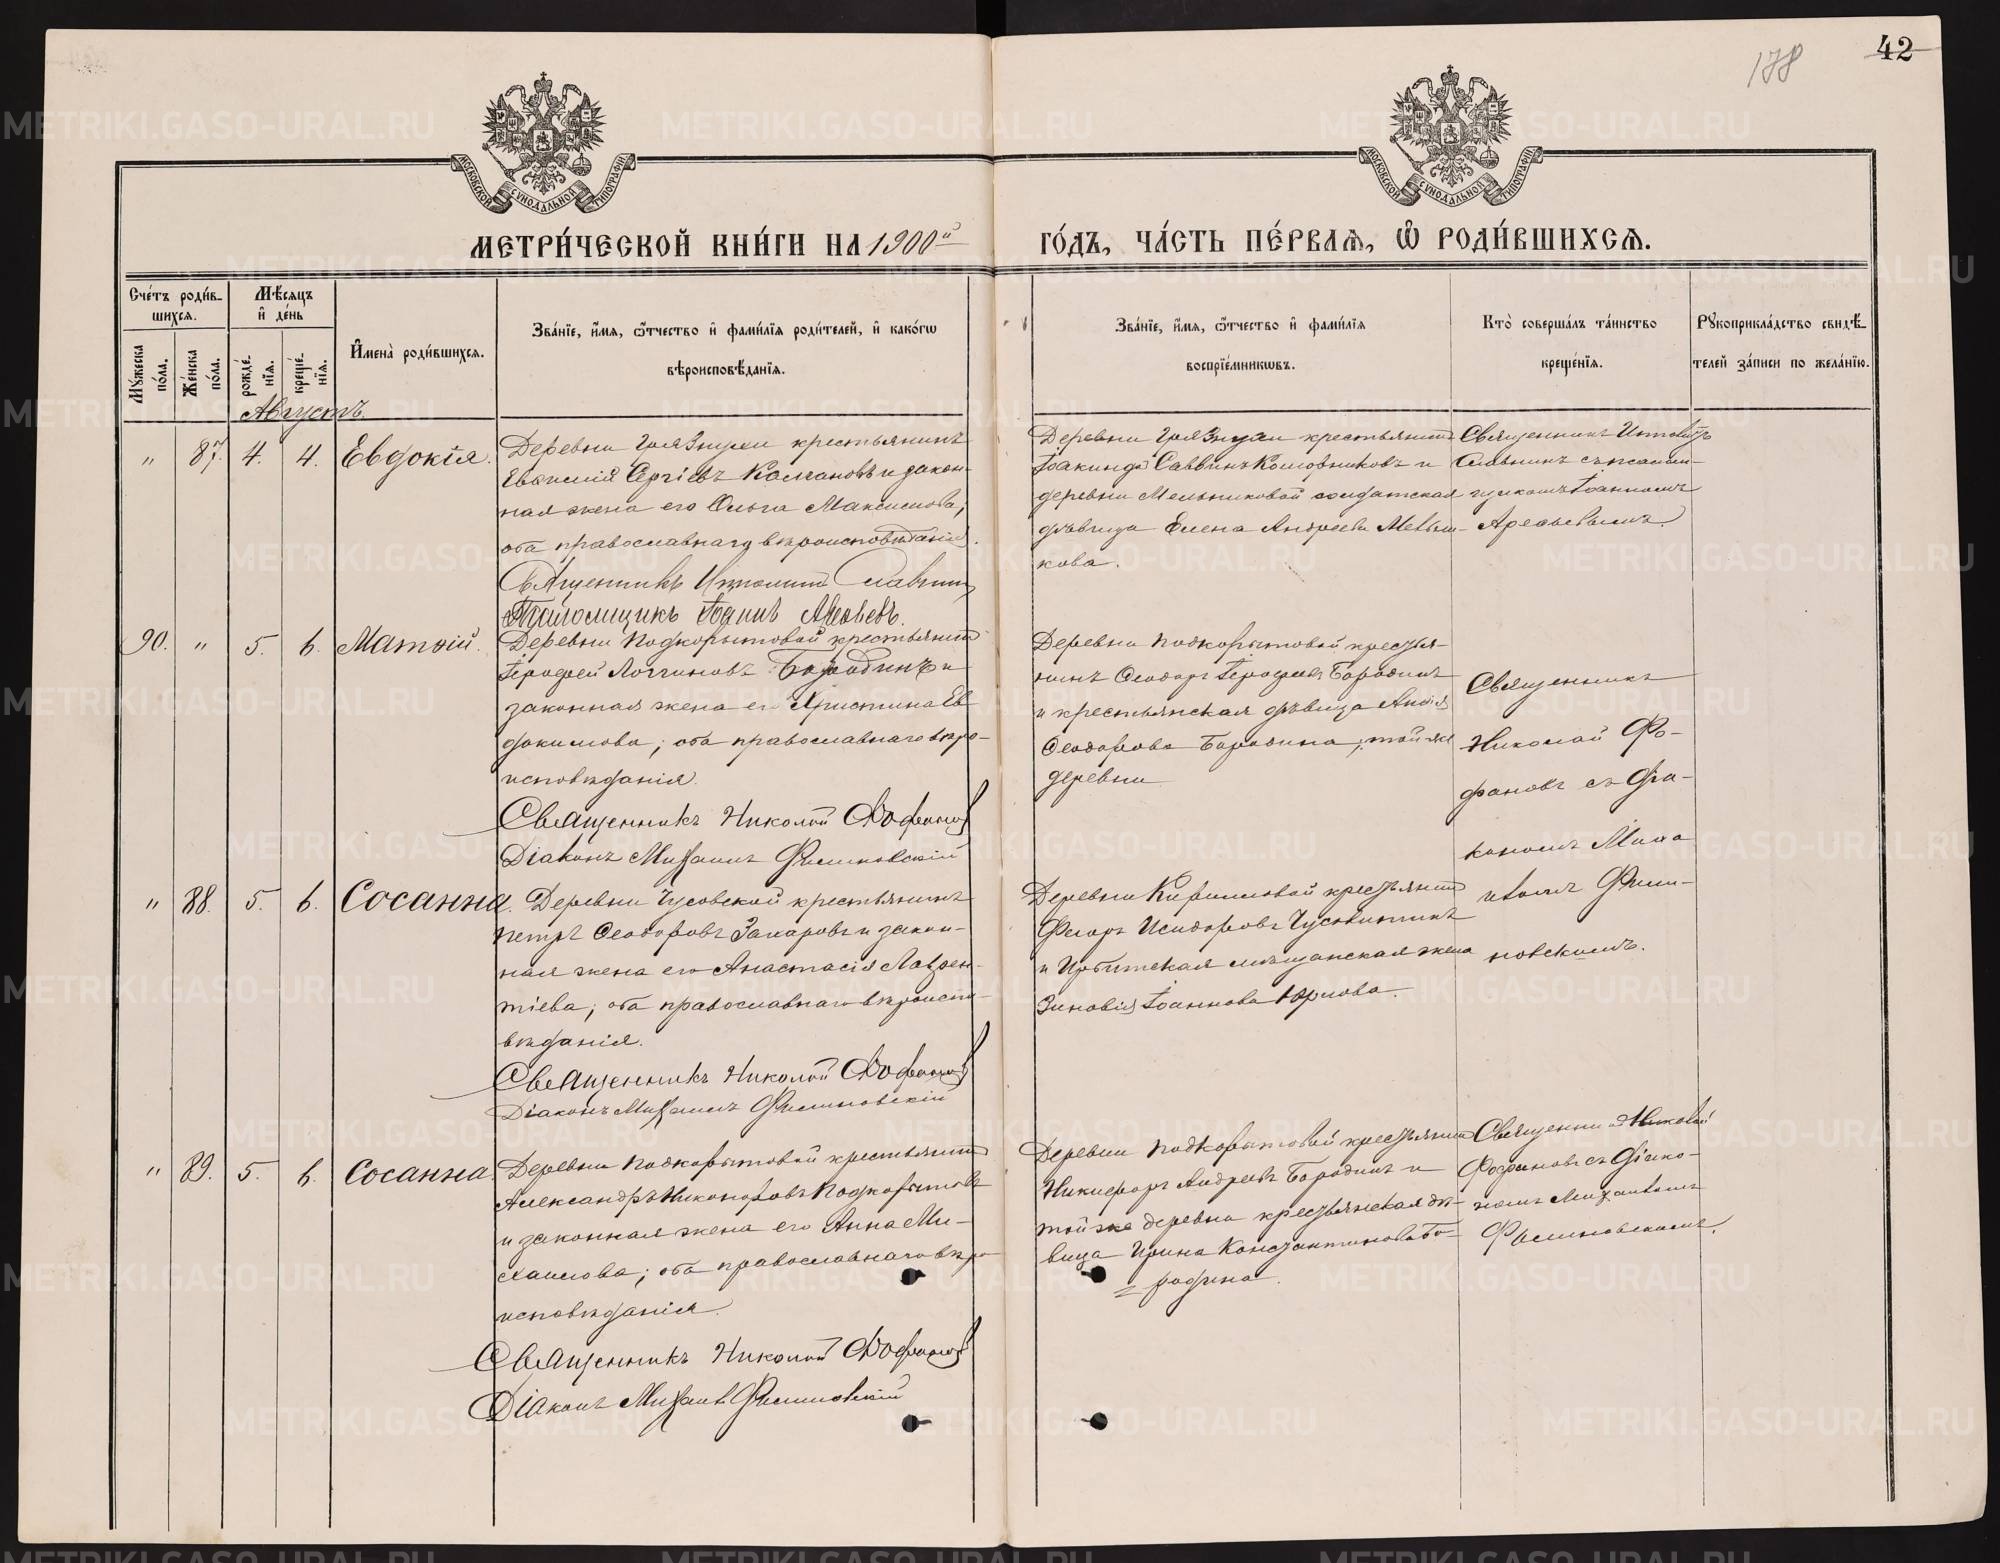 178
42
МОСКОВСКОЙ СУНОДАЛЬНОЙ ТИПОГРАФІИ
МОСКОВСКОЙ СУНОДАЛЬНОЙ ТИПОГРАФІИ
МЕТРИ́ЧЕСКОЙ КНИ́ГИ НА 1900й ГО́ДЪ, ЧА́СТЬ ПЕ́РВАѦ, Ѽ РОДИ́ВШИХСѦ.
Сче́тъ роди́в-
шихсѧ.
Мѣ́сѧцъ
и҆ де́нь
Мꙋ́жеска по́ла.
Же́нска по́ла.
рожде́-
нїѧ.
креще́-
нїѧ.
И҆мена̀ роди́вшихсѧ.
Зва́нїе, и҆́мѧ, ѻ҆́тчество и҆ фами́лїѧ роди́телей, и҆ како́гѡ
вѣроисповѣ́данїѧ.
Зва́нїе, и҆́мѧ, ѻ҆́тчество и҆ фами́лїѧ
воспрїе́мникѡвъ.
Кто̀ соверша́лъ та́инство
креще́нїѧ.
Рꙋкоприкла́дство свидѣ́-
телей за́писи по жела́нїю.
Августъ.
" 87. 4. 4. Евдокія.
Деревни Грязнухи крестьянинъ
Евѳимій Сергіевъ Колмановъ и закон-
ная жена его Ольга Максимова;
оба православнаго вѣроисповѣданія.
Священникъ Ипполитъ Славнинъ
Псаломщикъ Іоаннъ Арефьевъ.
Деревни Грязнухи крестьянинъ
Саввинъ и
деревни Мельниковой солдатская
дѣвица Елена Андреева Мельни-
кова.
Священникъ Ипполитъ
Славнинъ съ псалом-
щикомъ Іоанномъ
Арефьевымъ.
90. " 5. 6. Матѳій.
Деревни Подкорытовой крестьянинъ
Іероѳей Логгиновъ Бородинъ и
законная жена его Христина Ев-
докимова; оба православнаго вѣро-
исповѣданія.
Священникъ Николай Фофановъ
Діаконъ Михаилъ Филиновскій
Деревни Подкорытовой крестья-
нинъ Ѳеодоръ Іероѳеевъ Бородинъ
и крестьянская дѣвица
Ѳеодорова Бородина, той же
деревни
Священникъ
Николай Фо-
фановъ съ діа-
кономъ Миха-
иломъ Фили-
новскимъ.
" 88. 5. 6. Сосанна.
Деревни Чусовской крестьянинъ
Петръ Ѳеодоровъ Захаровъ и закон-
ная жена его Анастасія Лаврен-
тіева; оба православнаго вѣроиспо-
вѣданія.
Священникъ Николай Фофановъ
Діаконъ Михаилъ Филиновскій
Деревни Кирилловой крестьянинъ
Исидоровъ Чусовитинъ
и Ирбитская мѣщанская жена
Зиновія Іоаннова Юрлова.
" 89. 5. 6. Сосанна.
Деревни Подкорытовой крестьянинъ
Александръ Никоноровъ Подкорытовъ
и законная жена его Анна Ми-
хаилова; оба православнаго вѣро-
исповѣданія.
Священникъ Николай Фофановъ
Діаконъ Михаилъ Филиновскій
Деревни Подкорытовой крестьянинъ
Никифоръ Андреевъ Бородинъ и
той же деревни крестьянская дѣ-
вица Ирина Константинова Бо-
родина.
Священникъ Николай
Фофановъ съ діако-
номъ Михаиломъ
Филиновскимъ.
METRIKI.GASO-URAL.RU